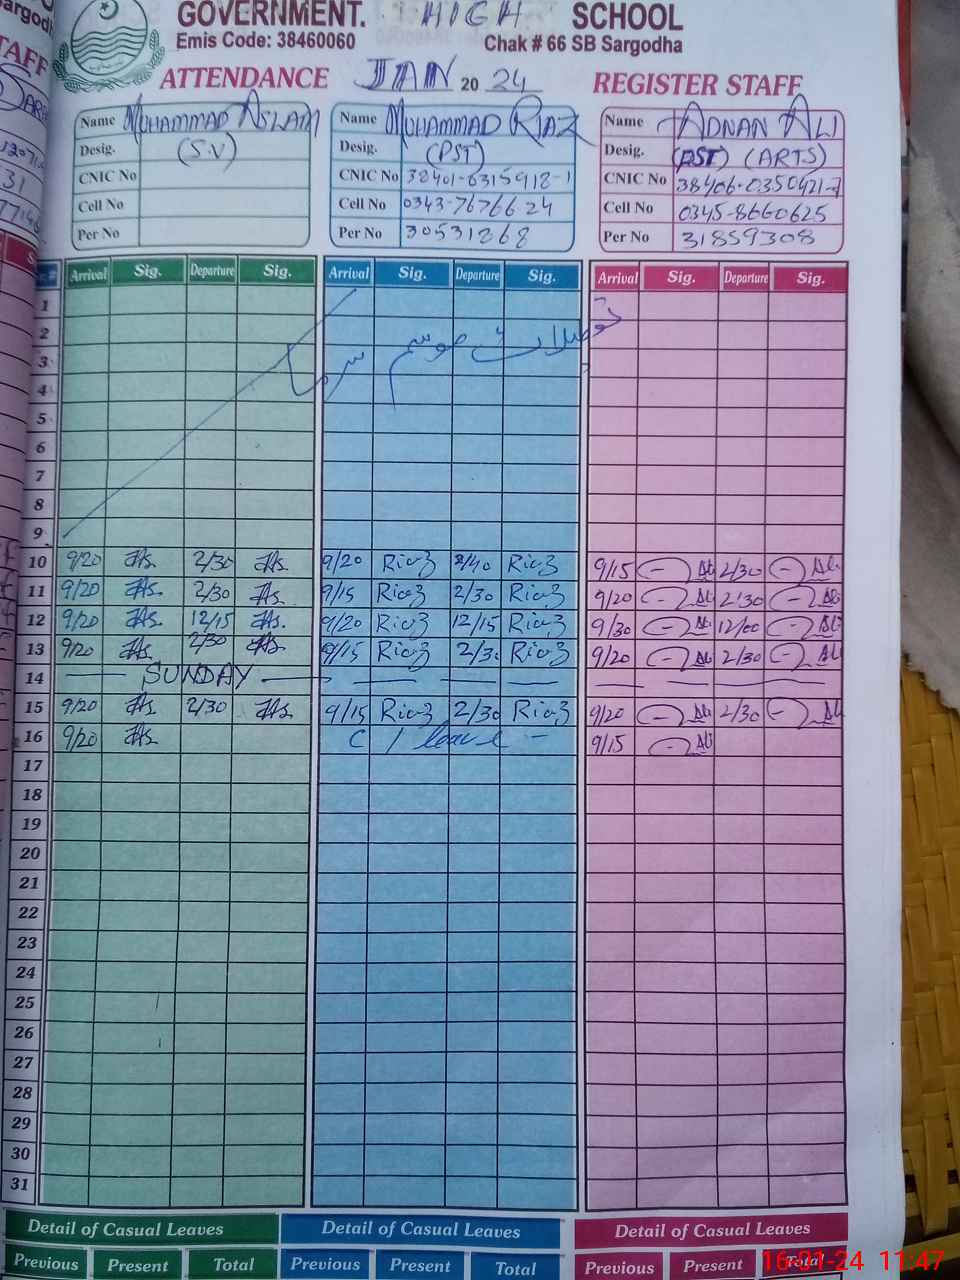 GOVERNMENT. HIGH SCHOOL
Emis Code: 38460060 Chak # 66 SB Sargodha
ATTENDANCE JAN 2024 REGISTER STAFF
Name MUHAMMAD ASLAM Name MUHAMMAD RIAZ Name ADNAN ALI
Desig. (S.V) Desig. (PST) Desig. (PST) (ARTS)
CNIC No CNIC No 38401-6315918-1 CNIC No 38406-0350421-7
Cell No Cell No 0343-7676624 Cell No 0345-8660625
Per No Per No 30531268 Per No 31859308
Arrival Sig. Departure Sig. Arrival Sig. Departure Sig. Arrival Sig. Departure Sig.
1
2
تعطیلات موسم سرما
3
4
5
6
7
8
9
10 9/20 2/30 9/20 Riaz 2/40 Riaz 9/15 2/30
11 9/20 2/30 9/15 Riaz 2/30 Riaz 9/20 2:30
12 9/20 12/15 9/20 Riaz 12/15 Riaz 9/30 12/00
13 9/20 2/30 9/15 Riaz 2/30 Riaz 9/20 2/30
14 SUNDAY
15 9/20 2/30 9/15 Riaz 2/30 Riaz 9/20 2/30
16 9/20 C / leave 9/15
17
18
19
20
21
22
23
24
25
26
27
28
29
30
31
Detail of Casual Leaves Detail of Casual Leaves Detail of Casual Leaves
Previous Present Total Previous Present Total Previous Present Total
16-01-24 11:47